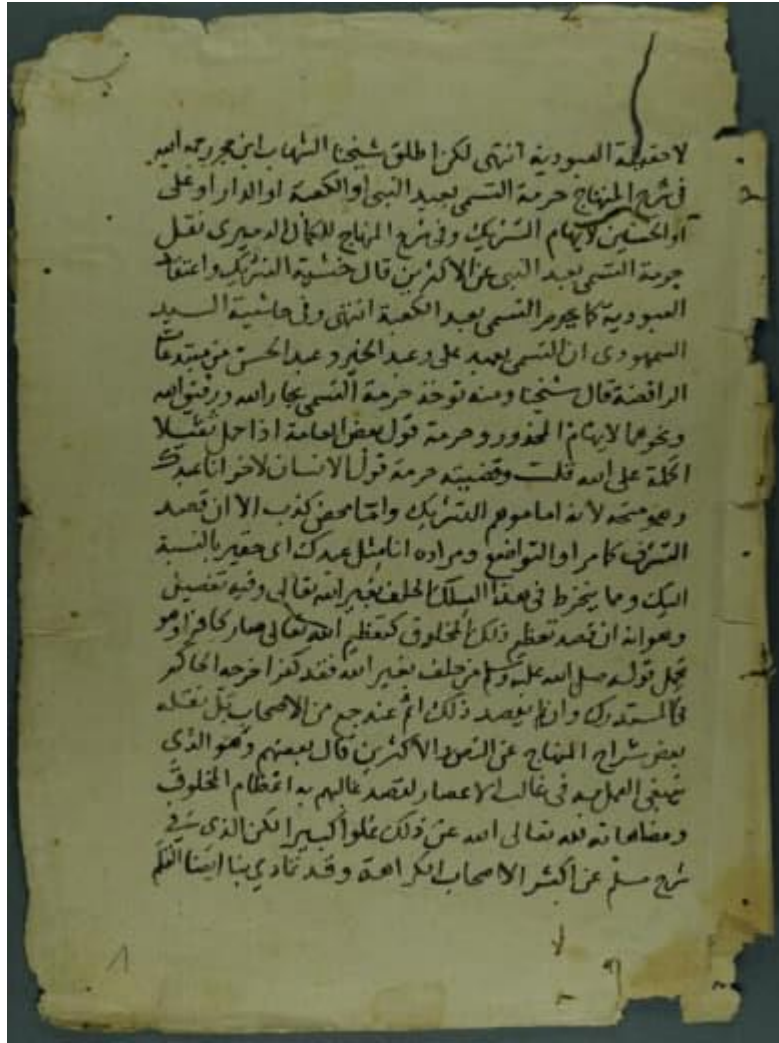 لا حقيقة العبودية انتهى لكن اطلق شيخنا الشهاب ابن حجر رحمه الله
في شرح المنهاج حرمة التسمى بعبد النبي او الكعبة او الدار او على
او الحسين لايهام التشريك وفي شرح المنهاج للكمال الدميرى نقل
حرمة التسمى بعبد النبي عن الاكثرين قال خشية التشريك واعتقاد
العبودية كما يحرم التسمى بعبد الكعبة انتهى وفي حاشية السيد
السمهودى ان التسمى بعبد على وعبد الحسن من مبتدعات
الرافضة قال شيخنا ومنه توخذ حرمة التسمى بجار الله ورفيق الله
ونحوهما لايهام المحذور وحرمة قول بعض العامة اذا حمل ثقيلا
الحملة على الله قلت وقضيته حرمة قول الانسان لاخر انا عبدك
وهو متجه لانه اما موهم للتشريك واما محض كذب الا ان قصد
التشرف كما مر او التواضع ومراده انا مثل عبدك اى حقير بالنسبة
اليك ومما ينخرط في هذا السلك الحلف بغير الله تعالى وفيه تفصيل
وهو انه ان قصد تعظيم ذلك المخلوق كتعظيم الله تعالى صار كافرا وهو
محمل قوله صلى الله عليه وسلم من حلف بغير الله فقد كفر اخرجه الحاكم
في المستدرك وان لم يقصد ذلك اثم عند جمع من الاصحاب بل نقله
بعض شراح المنهاج عن اكثرين قال بعضهم وهو الذى
ينبغى العمل به في غالب الاعصار لقصد غالبهم به اعظام المخلوق
ومضاهاته لله تعالى الله عن ذلك علوا كبيرا لكن الذى في
شرح مسلم عن اكثر الاصحاب الكراهة وقد تمادى بنا ايضا القلم